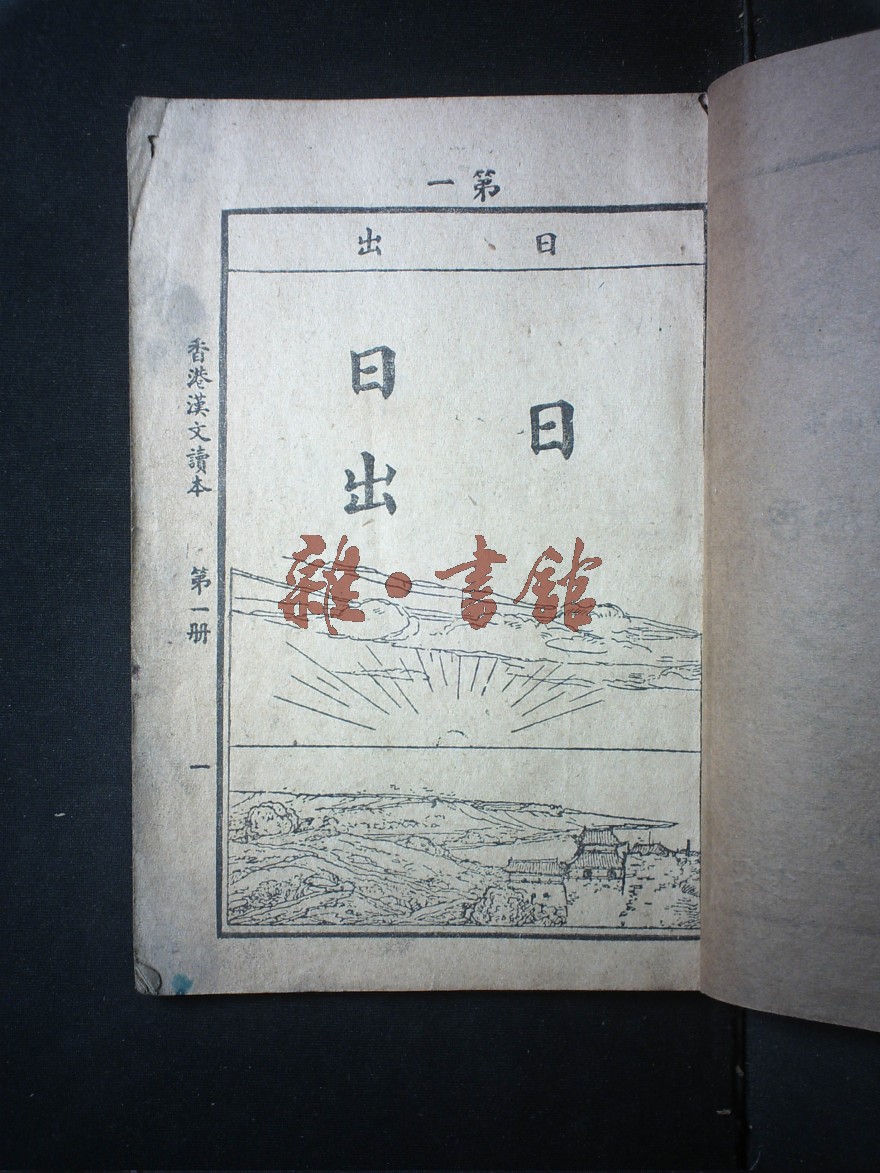 第一
日 出
日
日出
香港漢文讀本 第一册 一
雜·書館